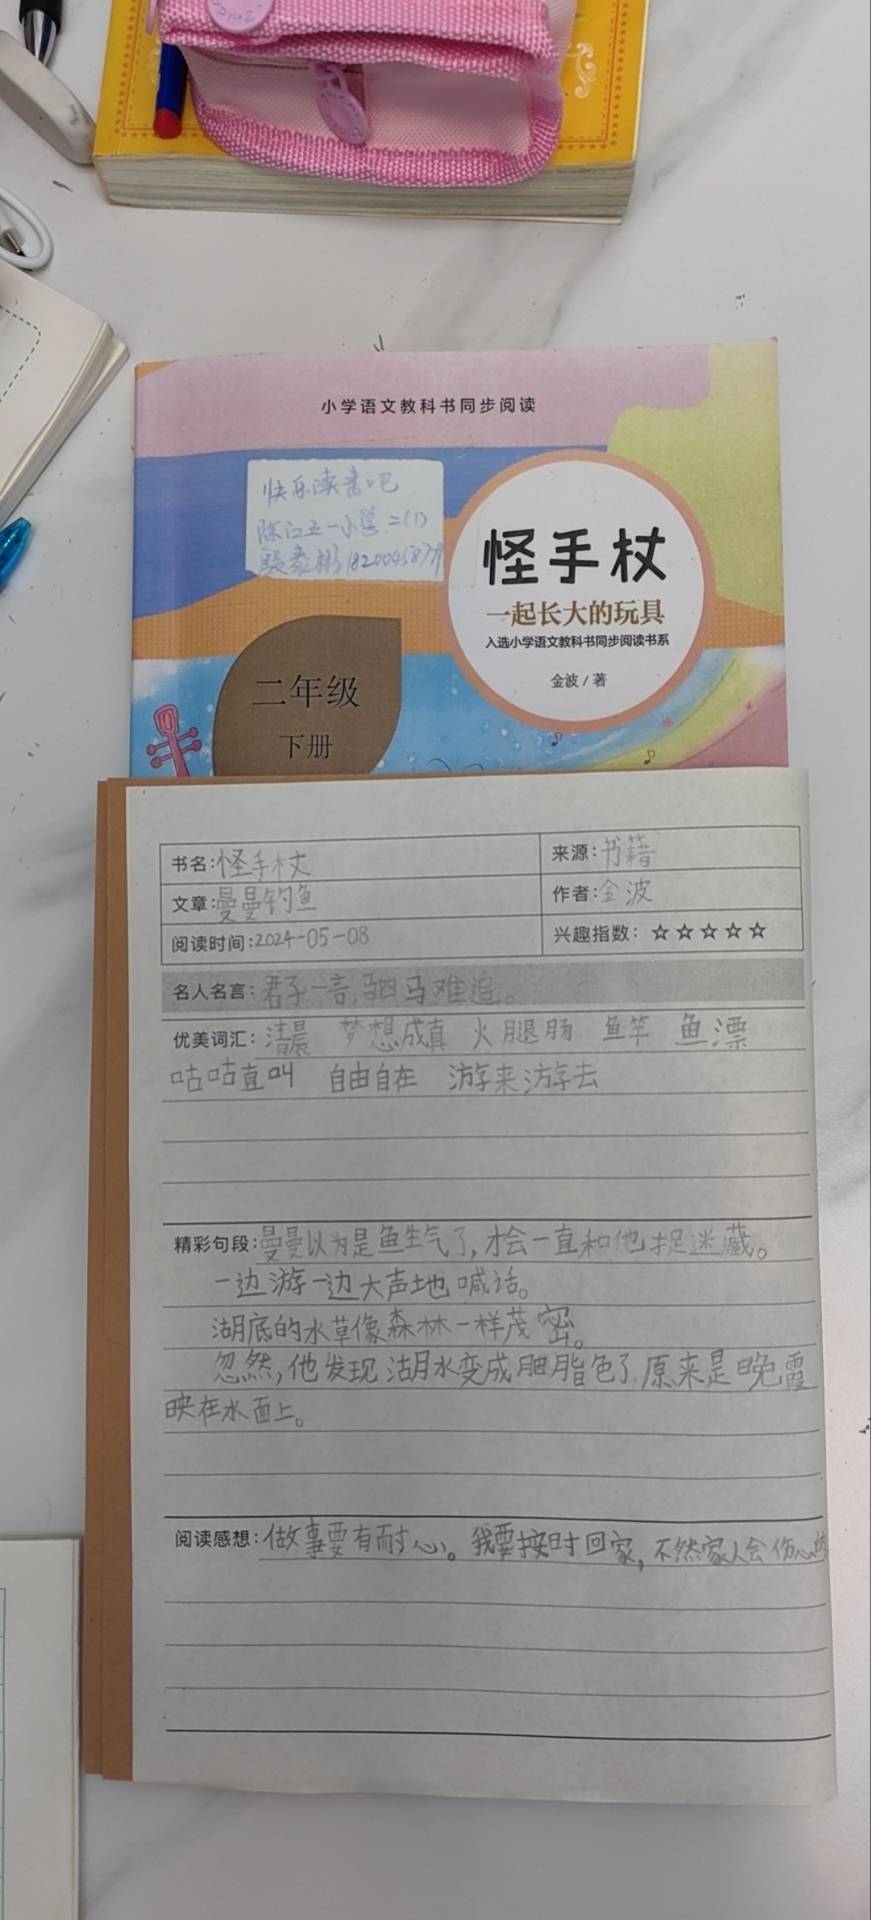 小学语文教科书同步阅读
快乐读书吧
陈江五一小学二(1)
怪手杖
一起长大的玩具
入选小学语文教科书同步阅读书系
金波/著
二年级
下册
书名:怪手杖
来源:书籍
文章:曼曼钓鱼
作者:金波
阅读时间:2024-05-08
兴趣指数:☆☆☆☆☆
名人名言:君子一言,驷马难追。
优美词汇:清晨 梦想成真 火腿肠 鱼竿 鱼漂
咕咕直叫 自由自在 游来游去
精彩句段:曼曼以为是鱼生气了,才会一直和他捉迷藏。
一边游一边大声地喊话。
湖底的水草像森林一样茂密。
忽然,他发现湖水变成胭脂色了,原来是晚霞
映在水面上。
阅读感想:做事要有耐心。我要按时回家,不然家人会伤心